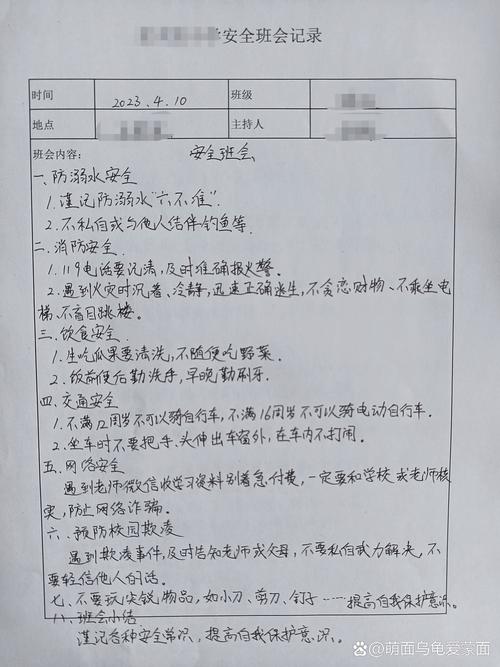 学安全班会记录
时间 2023.4.10 班级
地点 主持人
班会内容： 安全班会
一、防溺水安全
1.谨记防溺水"六不准".
2.不私自或与他人结伴钓鱼等.
二.消防安全
1.119电话要记清,及时准确报火警。
2.遇到火灾时沉着、冷静,迅速正确逃生,不贪恋财物、不乘坐电
梯、不盲目跳楼。
三、饮食安全
1.生吃瓜果要清洗,不随便吃野菜.
2.饭前便后勤洗手,早晚勤刷牙.
四.交通安全
1.不满12周岁不可以骑自行车,不满16周岁不可以骑电动自行车.
2.坐车时不要把手、头伸出车窗外,在车内不打闹.
五、网络安全
遇到老师微信收学习资料别着急付费,一定要和学校或老师核
实,防止网络诈骗。
六、预防校园欺凌
遇到欺凌事件,及时告知老师或父母,不要私自武力解决,不
要轻信他人的话。
七、不要玩尖锐物品,如小刀、剪刀、钉子……提高自我保护意识。
八、班会小结
谨记各种安全常识,提高自我保护意识。
@萌面乌龟爱蒙面